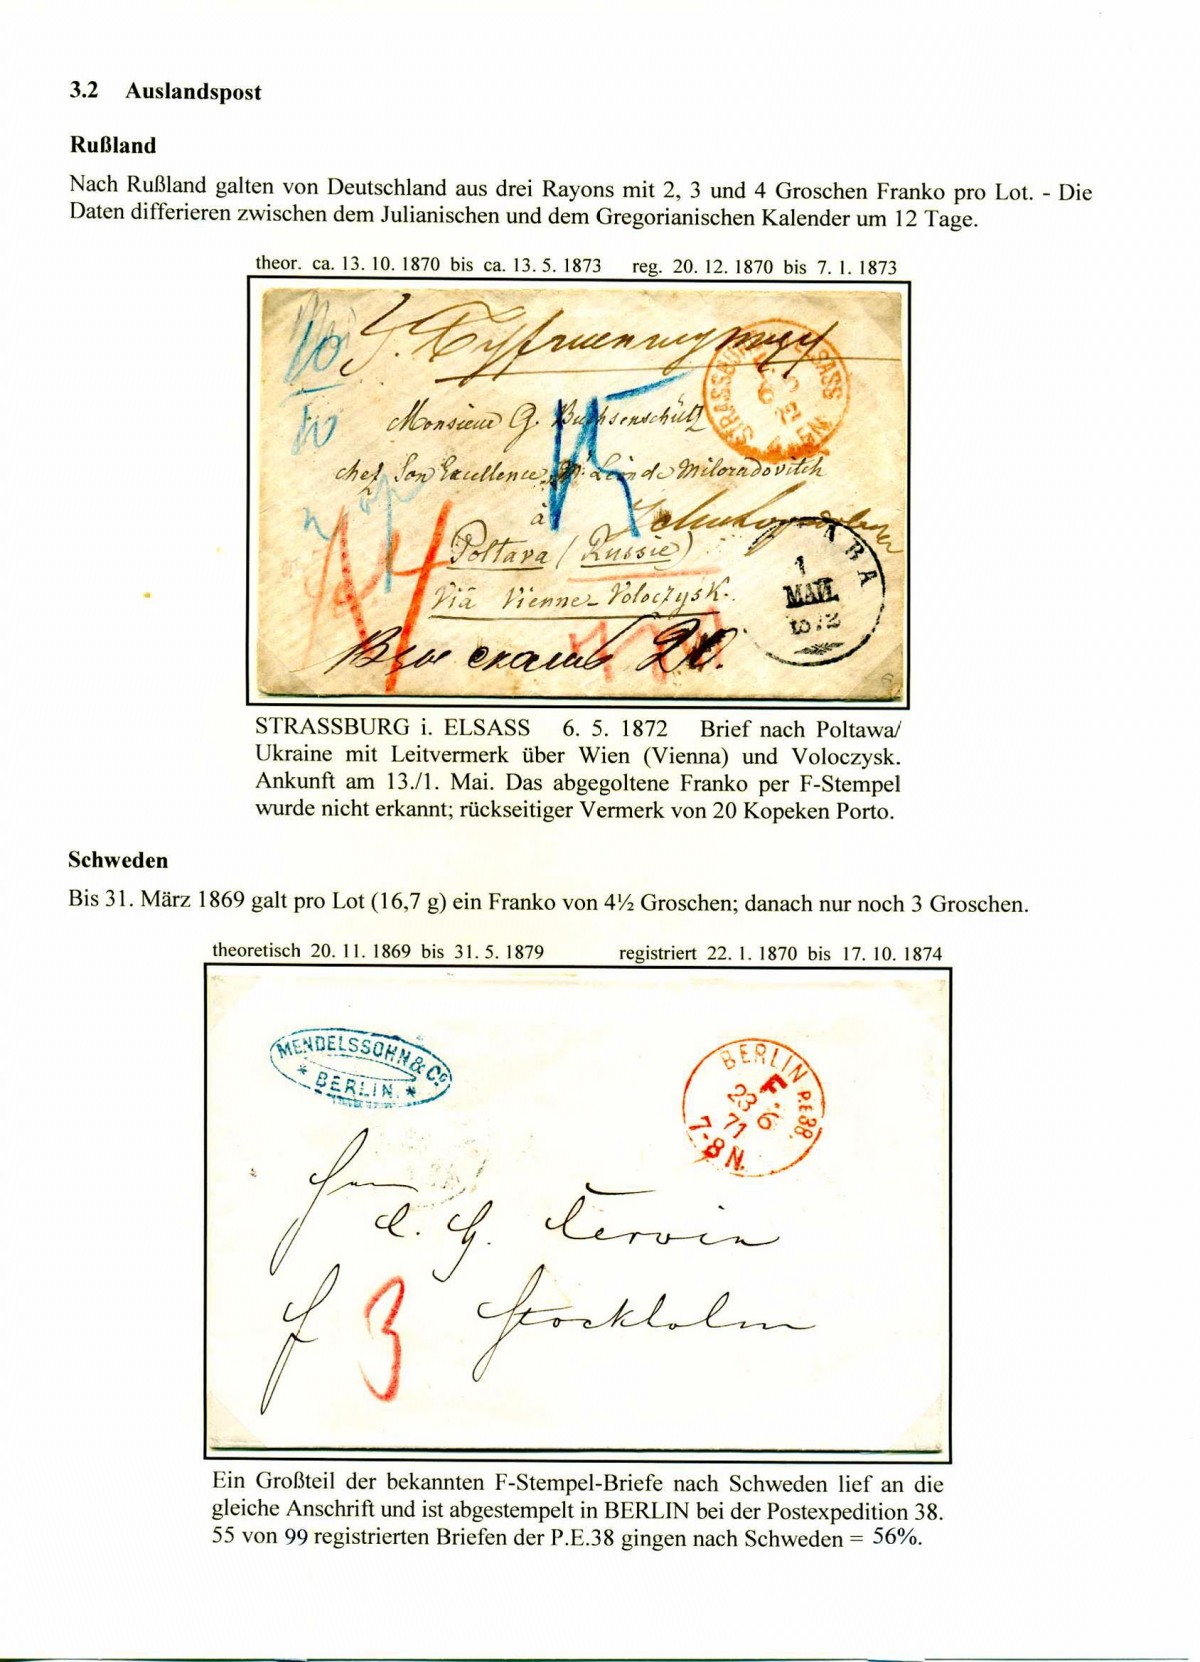 3.2 Auslandspost
Rußland
Nach Rußland galten von Deutschland aus drei Rayons mit 2, 3 und 4 Groschen Franko pro Lot. - Die
Daten differieren zwischen dem Julianischen und dem Gregorianischen Kalender um 12 Tage.
theor. ca. 13. 10. 1870 bis ca. 13. 5. 1873 reg. 20. 12. 1870 bis 7. 1. 1873
Monsieur G. Buchsenschütz
chez Son Excellence Mr. Léon de Miloradovitch
à
Poltava (Russie)
Viâ Vienne - Voloczysk.
20.
1
МАЯ.
1872
STRASSBURG i. ELSASS 6. 5. 1872 Brief nach Poltawa/
Ukraine mit Leitvermerk über Wien (Vienna) und Voloczysk.
Ankunft am 13./1. Mai. Das abgegoltene Franko per F-Stempel
wurde nicht erkannt; rückseitiger Vermerk von 20 Kopeken Porto.
Schweden
Bis 31. März 1869 galt pro Lot (16,7 g) ein Franko von 4½ Groschen; danach nur noch 3 Groschen.
theoretisch 20. 11. 1869 bis 31. 5. 1879 registriert 22. 1. 1870 bis 17. 10. 1874
MENDELSSOHN & Co
* BERLIN. *
BERLIN P.E.38.
F.
23 6
71
7-8 N.
Stockholm
3
Ein Großteil der bekannten F-Stempel-Briefe nach Schweden lief an die
gleiche Anschrift und ist abgestempelt in BERLIN bei der Postexpedition 38.
55 von 99 registrierten Briefen der P.E.38 gingen nach Schweden = 56%.